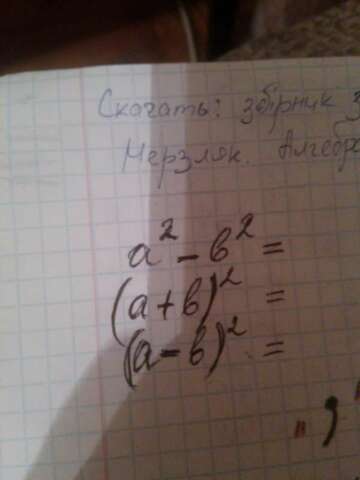 Скачать: збірник з
Мерзляк. Алгебра
a² - b² =
(a + b)² =
(a - b)² =
" ,